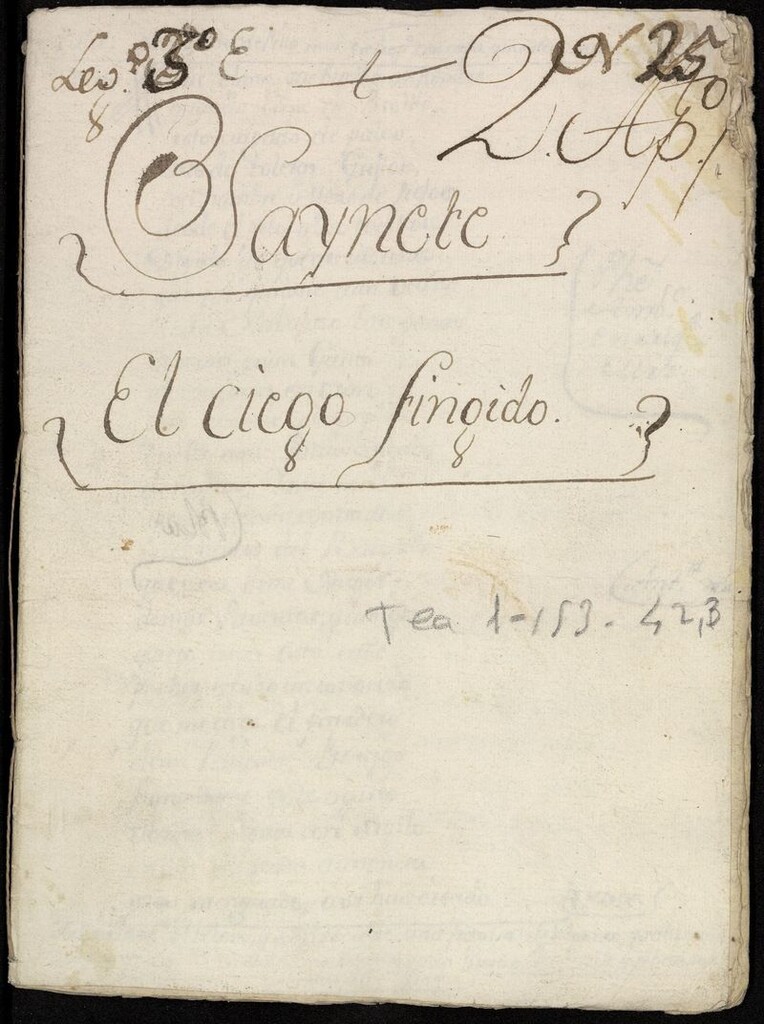 Leg.º 3º E N. 25
2. Apto 1
Saynete
El ciego fingido.
Tea 1-153-42,3